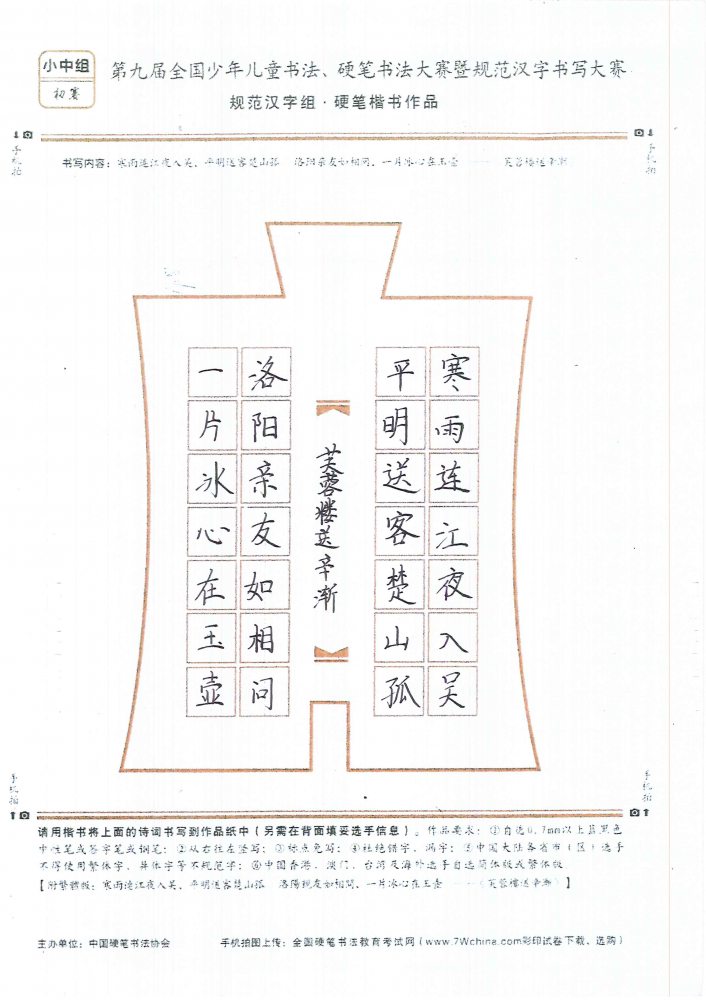 小中组
初赛
第九届全国少年儿童书法、硬笔书法大赛暨规范汉字书写大赛
规范汉字组·硬笔楷书作品
手机拍
手机拍
书写内容：寒雨连江夜入吴，平明送客楚山孤 洛阳亲友如相问，一片冰心在玉壶 —— 芙蓉楼送辛渐
寒雨连江夜入吴
平明送客楚山孤
芙蓉楼送辛渐
洛阳亲友如相问
一片冰心在玉壶
手机拍
手机拍
请用楷书将上面的诗词书写到作品纸中（另需在背面填妥选手信息）。作品要求：①自选0.7mm以上蓝黑色
中性笔或签字笔或钢笔；②从右往左竖写；③标点免写；④杜绝错字、漏字；⑤中国大陆各省市（区）选手
不得使用繁体字、异体字等不规范字；⑥中国香港、澳门、台湾及海外选手自选简体版或繁体版
【附繁體版：寒雨連江夜入吴，平明送客楚山孤 洛陽親友如相問，一片冰心在玉壺 ——《芙蓉樓送辛漸》】
主办单位：中国硬笔书法协会
手机拍图上传：全国硬笔书法教育考试网（www.7Wchina.com彩印试卷下载、选购）